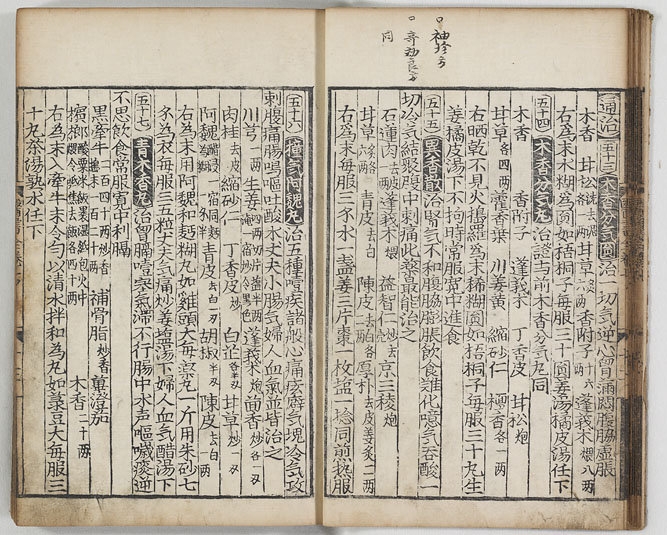 袖珍方
奇効良方
同
通治 五十三 木香分氣圓 治一切氣逆心胷滿悶腹脇虛脹
木香 甘松洗去泥各一兩 甘草六兩 香附子十六兩 蓬莪朮煨八兩
右為末水糊為圓如梧桐子每服三十圓姜湯橘皮湯任下
五十四 木香分氣丸 治證与前木香分氣丸同
木香 香附子 蓬莪朮 丁香皮 甘松炮
甘草各四兩 藿香葉 川姜黃 縮砂仁 檀香各一兩
右晒乾不見火搗羅為末稀糊圓如梧桐子每服三十九生
姜橘皮湯下不拘時常服寬中進食
五十五 異香散 治腎氣不和腹脇膨脹飲食難化噫氣吞酸一
切冷氣結聚腹中刺痛此藥最能治之
石蓮肉一兩去皮 蓬莪朮煨 益智仁炒去 京三稜炮
甘草炙各六兩 青皮去白 陳皮去白各三兩 厚朴去皮姜炙二兩
右為末每服三錢水一盞姜三片棗一枚塩一捻同煎熱服
五十六 撞氣阿魏丸 治五種噎疾諸般心痛痃癖氣塊冷氣攻
刺腹痛腸鳴嘔吐酸水丈夫小腸氣婦人血氣並皆治之
川芎一兩 生姜四兩切片塩半兩淹一宿炒令黑色 蓬莪朮炮 茴香炒各一兩
肉桂去皮 縮砂仁 丁香皮炒 白芷各半兩 甘草炒一兩
阿魏 青皮去白一兩 胡椒半兩 陳皮去白一兩
右為末用阿魏和麪糊丸如雞頭大每藥丸一斤用朱砂七
錢為衣每服三五粒丈夫氣痛炒姜塩湯下婦人血氣醋湯下
五十七 青木香丸 治胷膈噎塞氣滯不行腸中水声嘔噦痰逆
不思飲食常服寬中利膈
黑牽牛二百四十兩炒香擣末一百二十兩 補骨脂炒香 蓽澄茄
檳榔酸粟米飯裹濕紙包火中煨令紙焦去飯各四十兩 木香二十兩
右為末入牽牛末令勻以清水拌和為丸如菉豆大每服三
十丸茶湯熟水任下